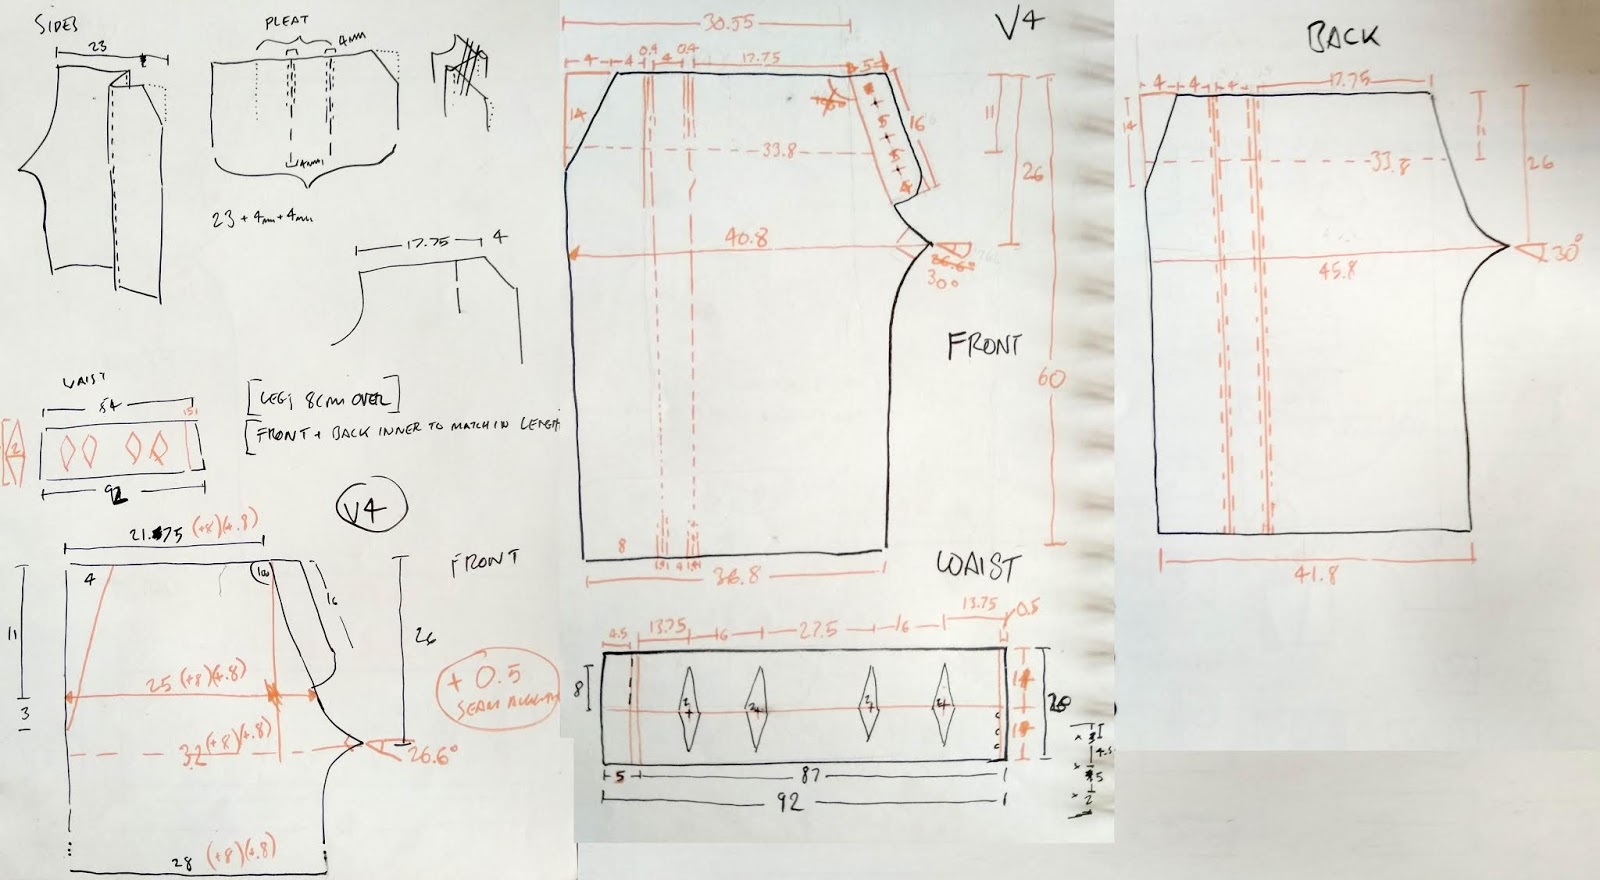 SIDES
23
PLEAT
4mm
4mm
23 + 4mm + 4mm
17.75
4
WAIST
84
2
92
[LEG; 8CM OVER]
[FRONT + BACK INNER TO MATCH IN LENGTH
V4
21.75 (+8)(+.8)
FRONT
4
16
11
26
25 (+8)(+.8)
3
+ 0.5
SEAM
32 (+8)(+.8)
26.6°
28 (+8)(+.8)
V4
30.55
4
4
0.4
4
0.4
17.75
5
14
16
11
26
33.8
5
5
4
40.8
26.6°
30°
FRONT
60
8
4
36.8
WAIST
4.5
13.75
6
27.5
6
13.75
0.5
8
2
2
2
2
5
87
92
4.5
5
2
BACK
4
4
4
17.75
14
11
26
33.8
45.8
30°
41.8